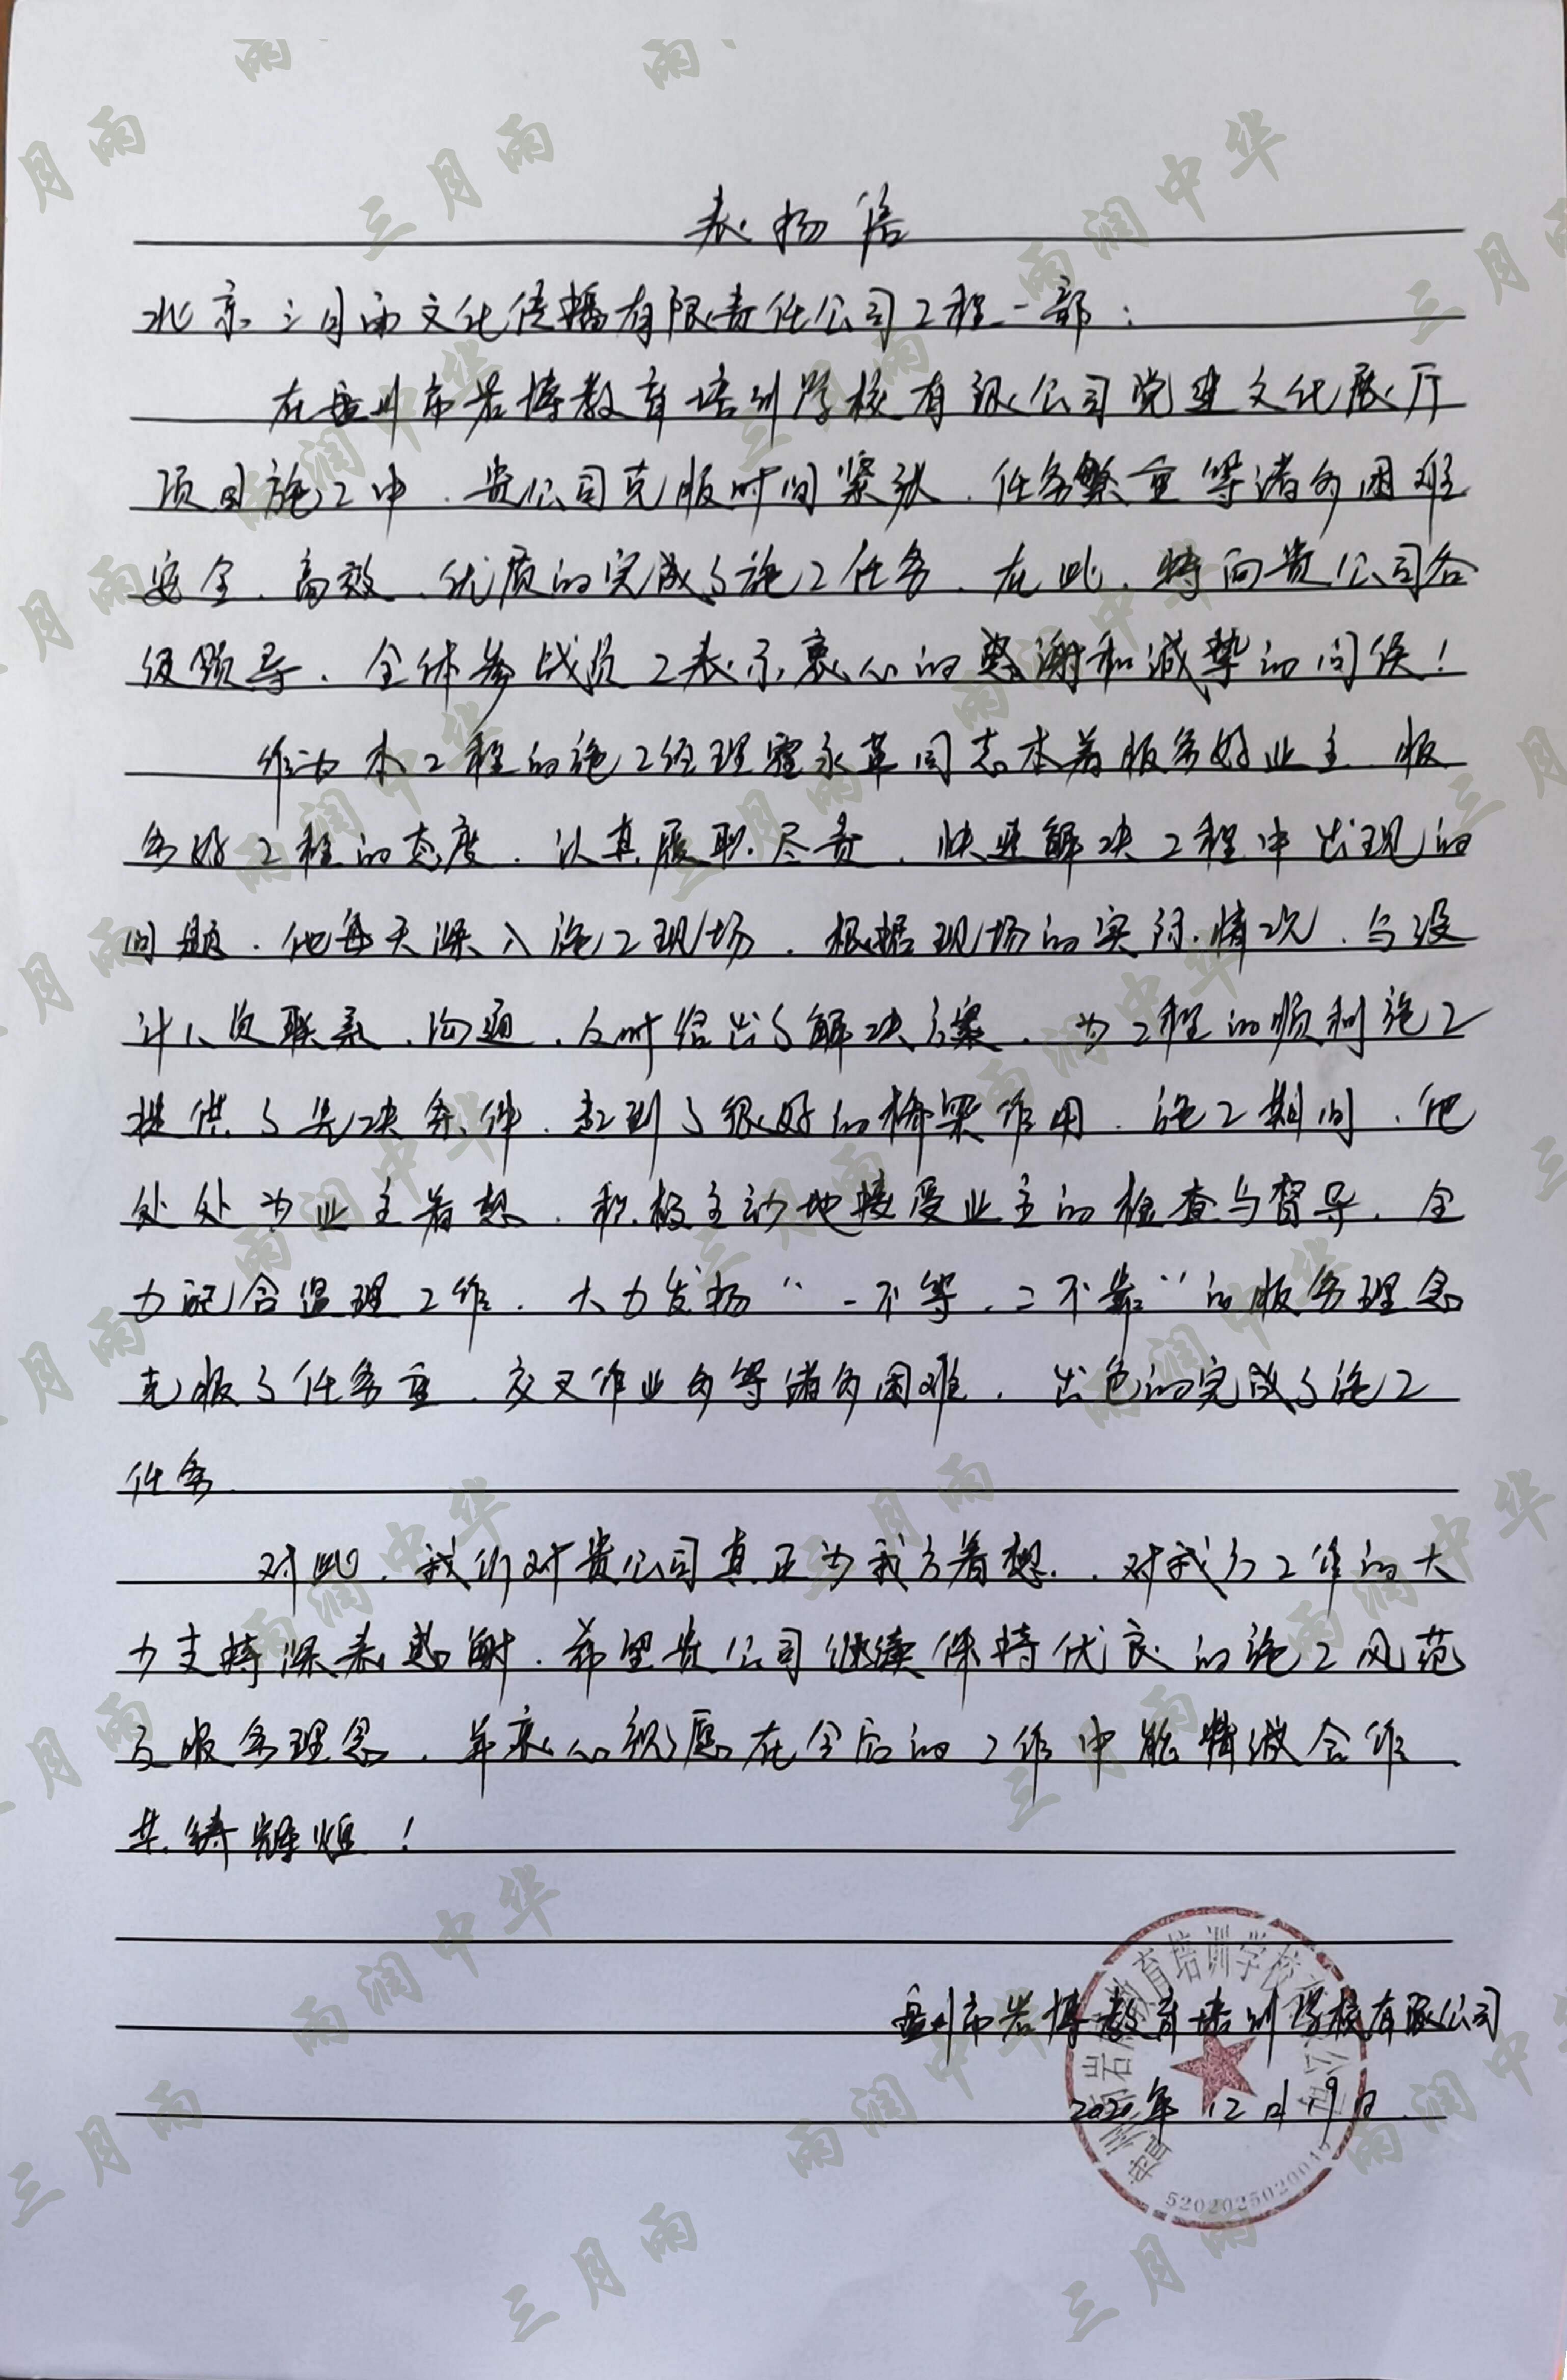 表扬信
北京三月雨文化传播有限责任公司工程一部:
在盘州市岩博教育培训学校有限公司党建文化展厅
项目施工中、贵公司克服时间紧张、任务繁重等诸多困难
安全、高效、优质的完成了施工任务、在此、特向贵公司各
级领导、全体参战员工表示衷心的感谢和诚挚的问候!
作为本工程的施工经理 永革同志本着服务好业主、服
务好工程的态度、认真履职尽责、快速解决工程中出现的
问题、他每天深入施工现场、根据现场的实际情况、与设
计人员联系、沟通、及时给出了解决方案、为工程的顺利施工
提供了先决条件、起到了很好的桥梁作用、施工期间、他
处处为业主着想、积极主动地接受业主的检查与督导、全
力配合监理工作、大力发扬“一不等、二不靠”的服务理念
克服了任务重、交叉作业多等诸多困难、出色的完成了施工
任务.
对此、我们对贵公司真正为我方着想、对我方工作的大
力支持深表感谢、希望贵公司继续保持优良的施工风范
及服务理念、并衷心祝愿在今后的工作中能精诚合作
共铸辉煌!
盘州市岩博教育培训学校有限公司
2020年12月19日.
盘州市岩博教育培训学校有限公司
三月雨
雨润中华